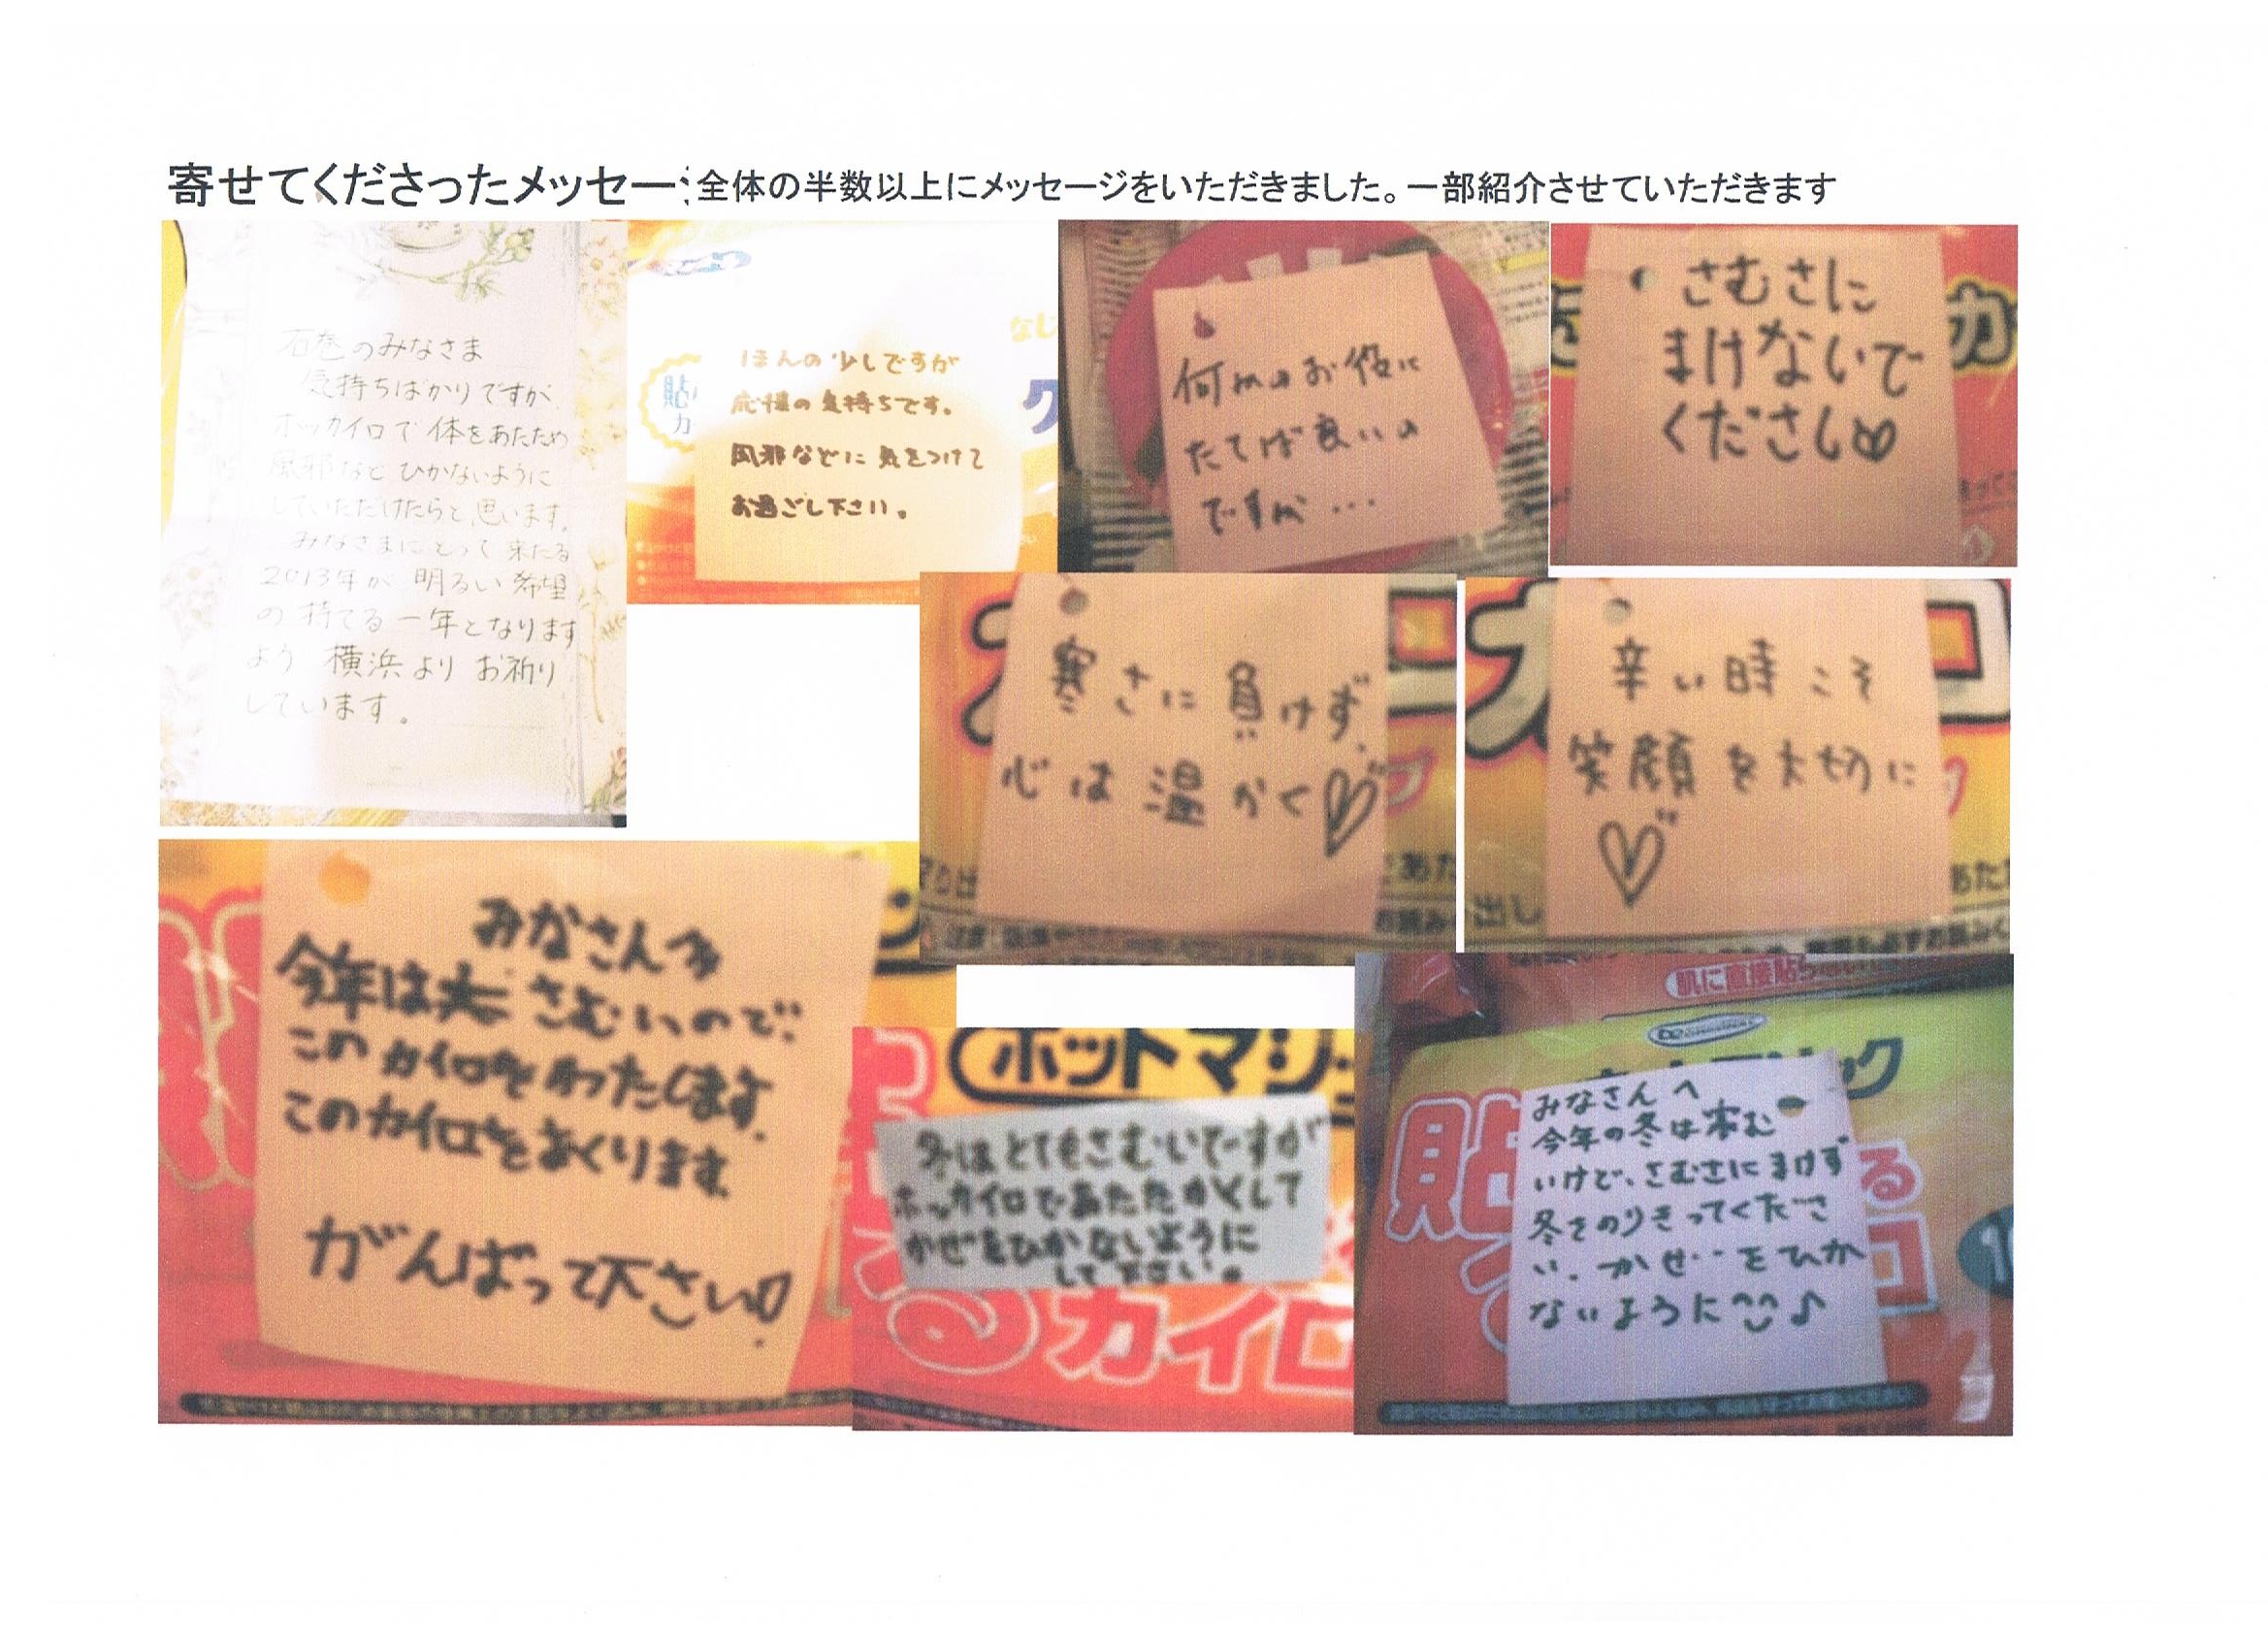 寄せてくださったメッセー
全体の半数以上にメッセージをいただきました。一部紹介させていただきます
石巻のみなさま
気持ちばかりですが、
ホッカイロで体をあたため
風邪など ひかないように
していただけたらと思います。
みなさまにとって 来たる
2013年が 明るい希望
の持てる一年となります
よう 横浜より お祈り
しています。
ほんの少しですが
応援の気持ちです。
風邪などに気をつけて
お過ごし下さい。
貼
カ
なし
ク
何かのお役に
たてば良いの
ですが…
さむさに
まけないで
ください♡
カ
寒さに負けず、
心は温かく♡
辛い時こそ
笑顔を大切に
♡
出し
みなさんへ
今年は さむいので、
このカイロをわたします。
このカイロをおくります。
がんばって下さい!
ホットマジ
冬はとてもさむいですが
ホッカイロであたたかくして
かぜをひかないように
して下さい。
る
カイロ
肌に直接貼
ック
貼
る
みなさんへ
今年の冬は寒む
いけど、さむさにまけず
冬をのりきってくださ
い。かぜをひか
ないように♪
コ